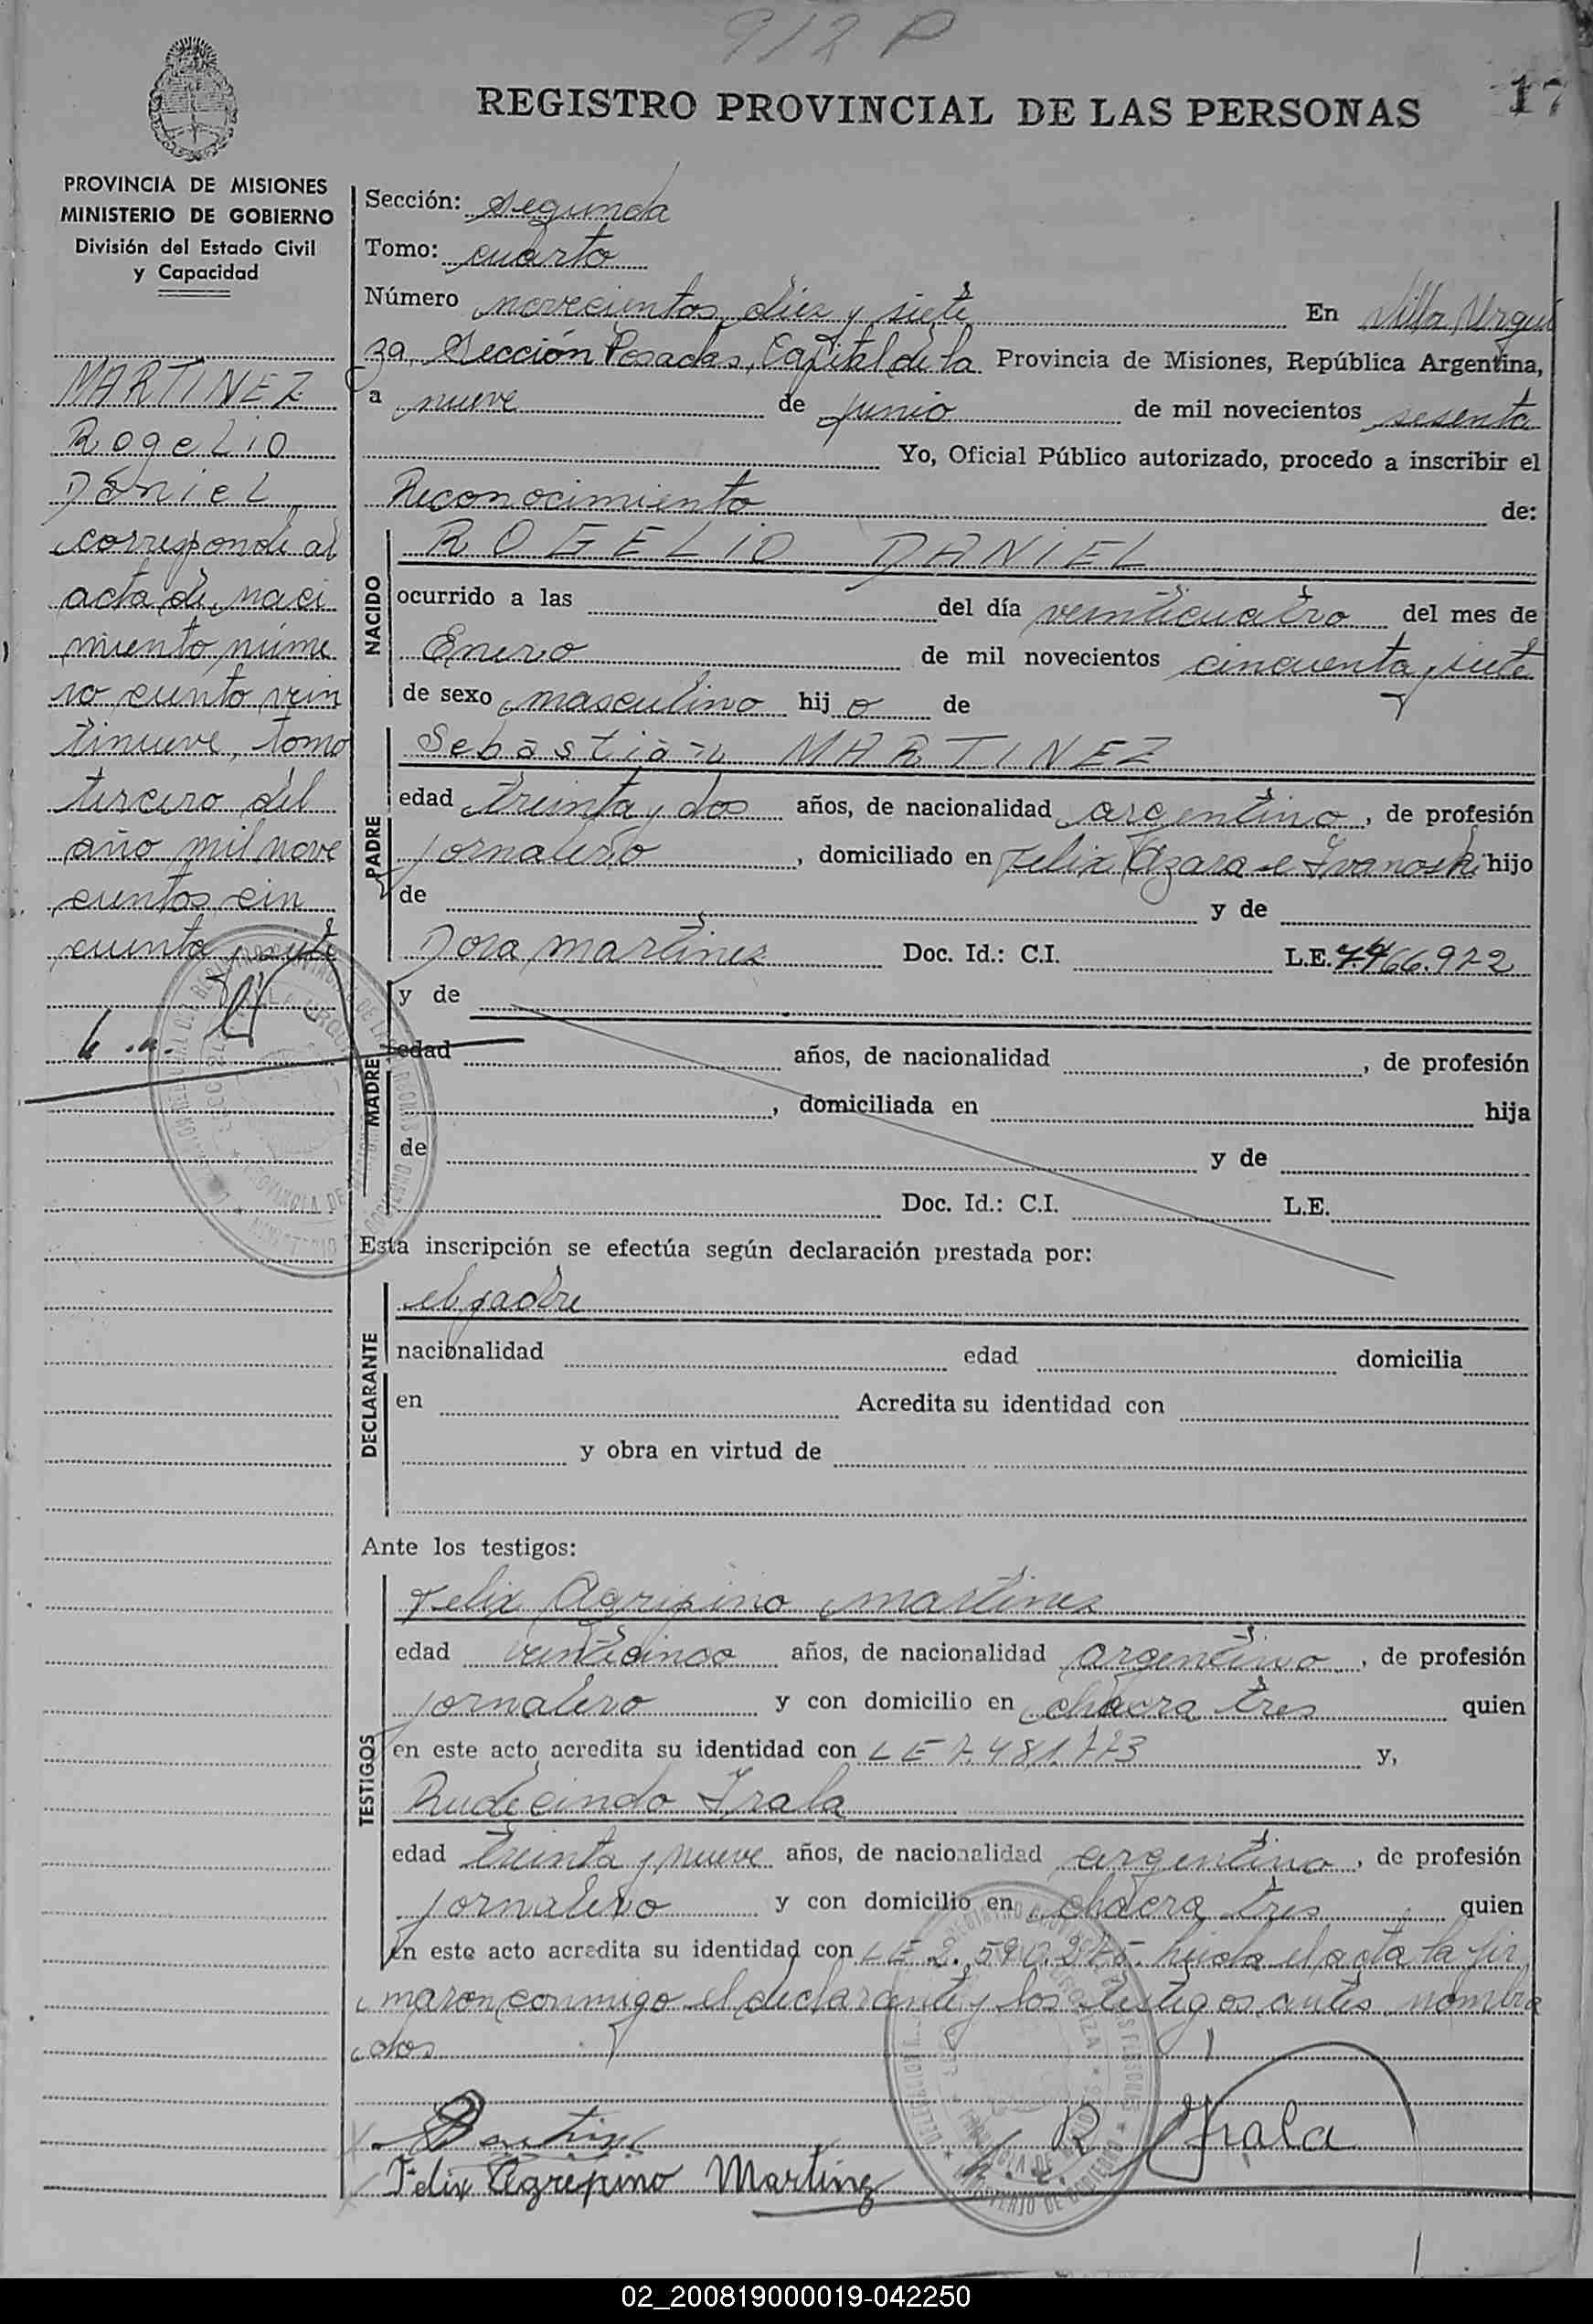 912 P
REGISTRO PROVINCIAL DE LAS PERSONAS
17
PROVINCIA DE MISIONES
MINISTERIO DE GOBIERNO
División del Estado Civil
y Capacidad
MARTINEZ
Rogelio
Daniel
corresponde al
acta de naci
miento núme
ro ciento vein
tinueve, tomo
tercero del
año mil nove
cientos cin
cuenta y siete
Sección: segunda
Tomo: cuarto
Número novecientos diez y siete En Villa Urqui
za Sección Posadas, Capital de la Provincia de Misiones, República Argentina,
a nueve de junio de mil novecientos sesenta
Yo, Oficial Público autorizado, procedo a inscribir el
Reconocimiento de:
NACIDO
ROGELIO DANIEL
ocurrido a las del día veinticuatro del mes de
Enero de mil novecientos cincuenta y siete
de sexo masculino hijo de
PADRE
Sebastián MARTINEZ
edad treinta y dos años, de nacionalidad argentino, de profesión
jornalero, domiciliado en Felix Azara e Ivanoski hijo
de y de
Dora martinez Doc. Id.: C.I. L.E. 7.466.972
MADRE
y de
edad años, de nacionalidad , de profesión
, domiciliada en hija
de y de
Doc. Id.: C.I. L.E.
Esta inscripción se efectúa según declaración prestada por:
DECLARANTE
el padre
nacionalidad edad domicilia
en Acredita su identidad con
y obra en virtud de
Ante los testigos:
TESTIGOS
Felix Agripino martinez
edad veinticinco años, de nacionalidad argentino, de profesión
jornalero y con domicilio en chacra tres quien
en este acto acredita su identidad con LE 7.481.773 y,
Rudecindo Irala
edad treinta y nueve años, de nacionalidad argentino, de profesión
jornalero y con domicilio en chacra tres quien
en este acto acredita su identidad con LE 2.590.275. leida el acta la fir
maron conmigo el declarante y los testigos antes nombra
dos
R Irala
Felix Agripino Martinez
02_200819000019-042250